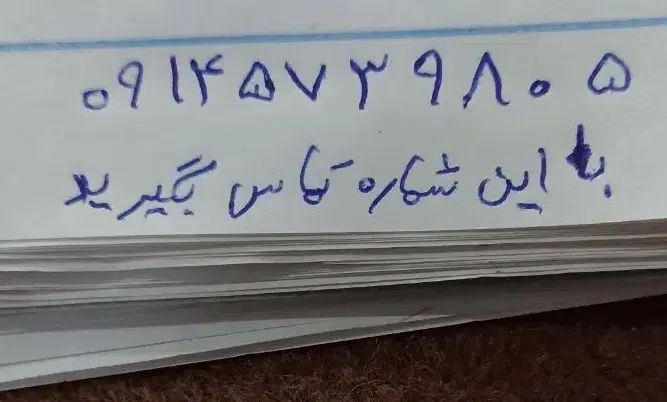 ۰۹۱۴۵۷۳۹۸۰۵
با این شماره تماس بگیرید